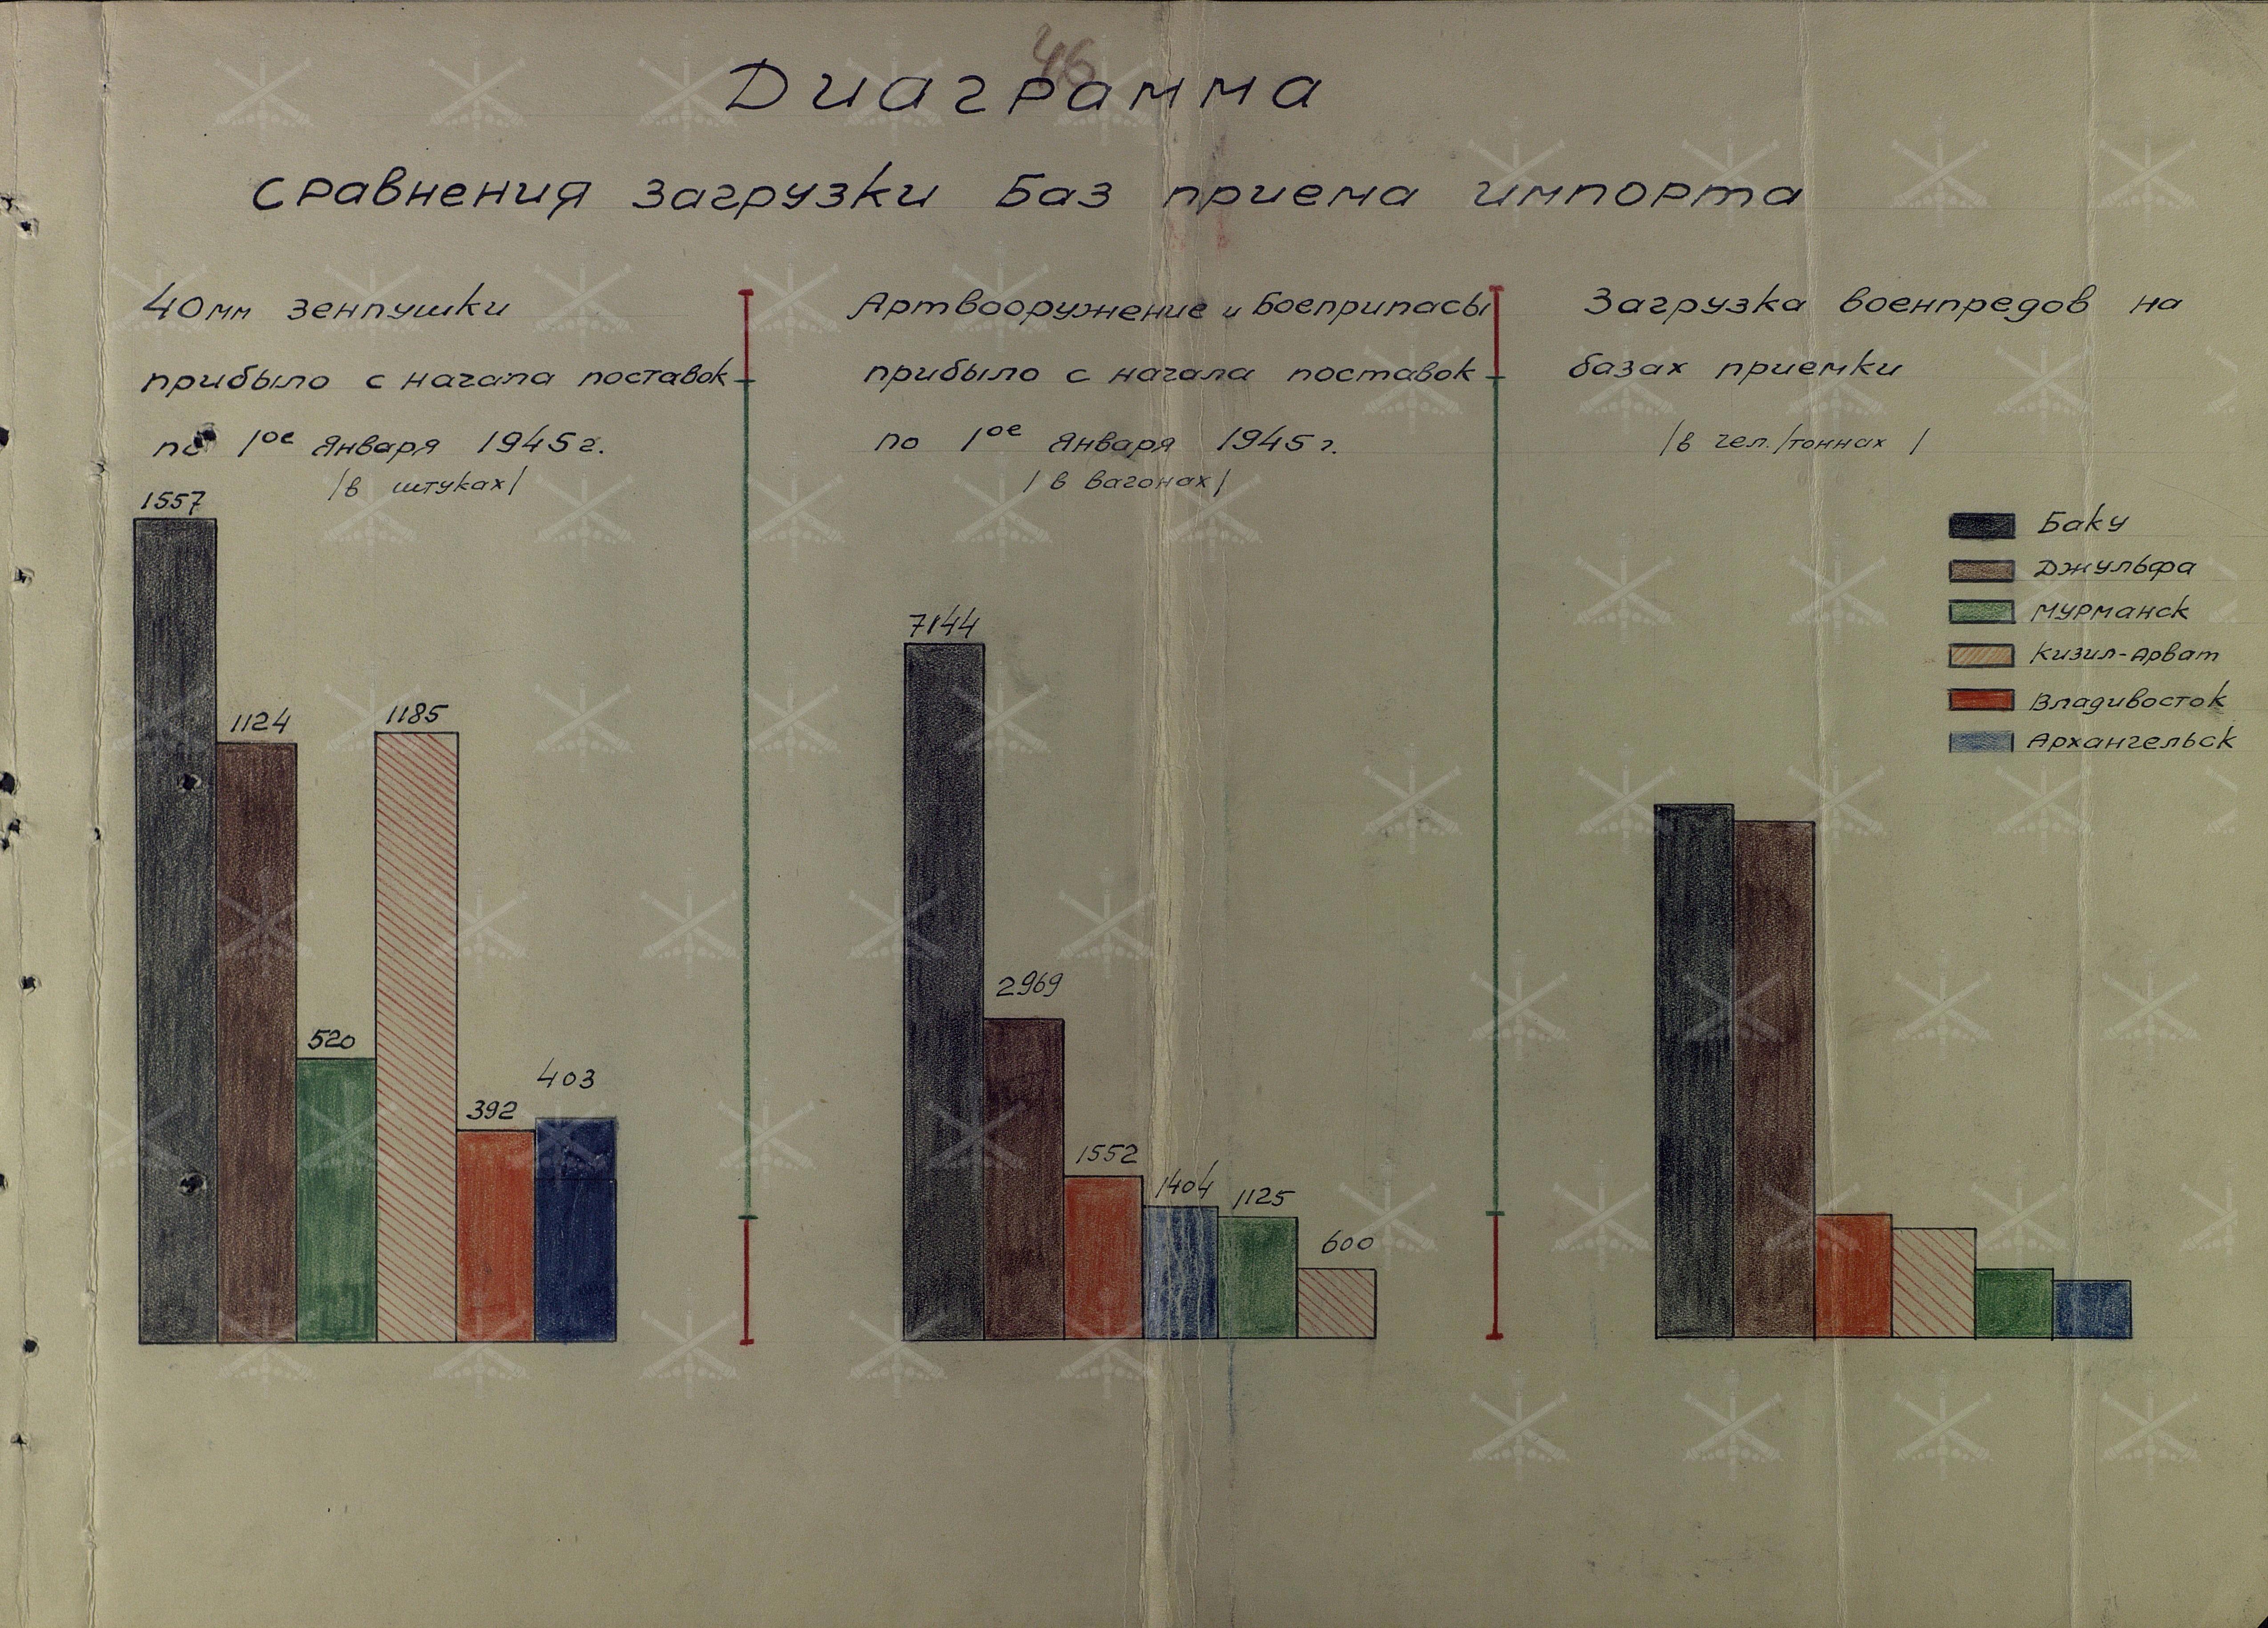 46
Диаграмма
сравнения загрузки баз приема импорта
40мм зенпушки
прибыло с начала поставок
по 1ое Января 1945г.
/в штуках/
1557
1124
520
1185
392
403
Артвооружение и боеприпасы
прибыло с начала поставок
по 1ое Января 1945г.
/в вагонах/
7144
2969
1552
1404
1125
600
Загрузка военпредов на
базах приемки
/в чел./тоннах/
Баку
Джульфа
Мурманск
Кизил-Арват
Владивосток
Архангельск